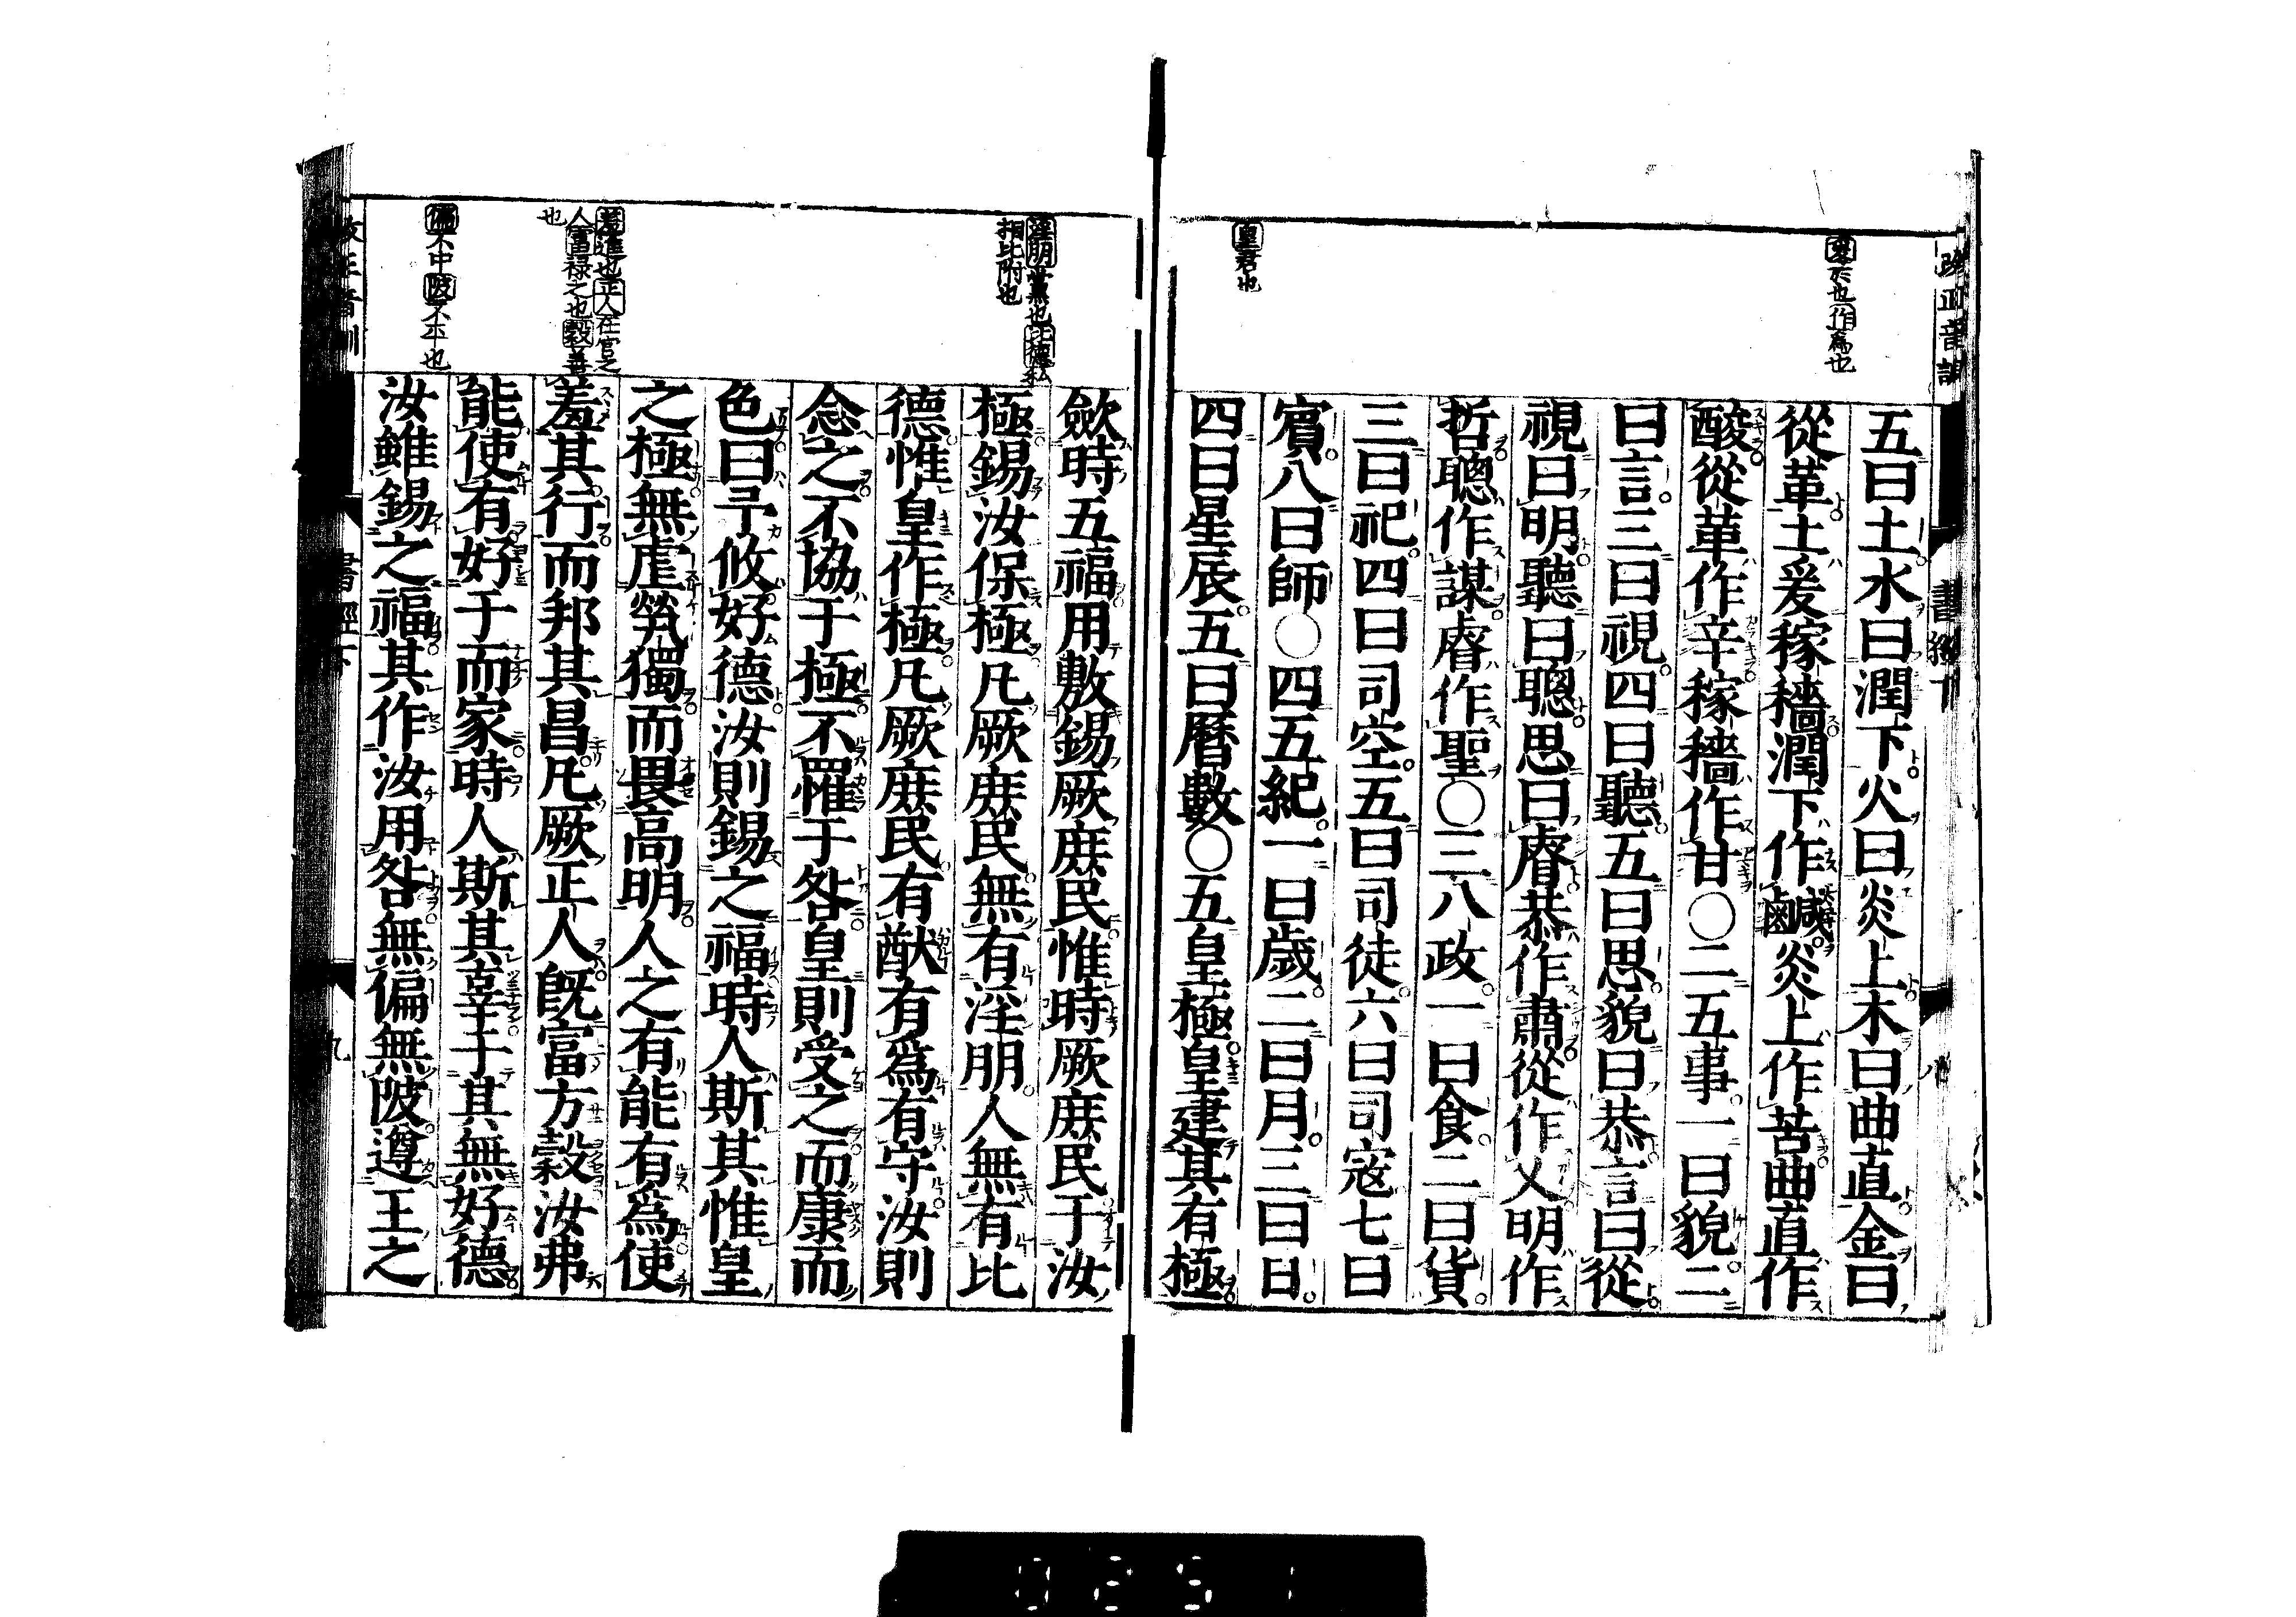 改正音訓
書經下
八
爰於也作爲也
皇君也
五曰土水曰潤下火曰炎上木曰曲直金曰
從革土爰稼穡潤下作鹹炎上作苦曲直作
酸從革作辛稼穡作甘〇二五事一曰貌二
曰言三曰視四曰聽五曰思貌曰恭言曰從
視曰明聽曰聰思曰睿恭作肅從作乂明作
哲聰作謀睿作聖〇三八政一曰食二曰貨
三曰祀四曰司空五曰司徒六曰司寇七曰
賓八曰師〇四五紀一曰歲二曰月三曰日
四曰星辰五曰曆數〇五皇極皇建其有極
淫朋黨也比德私
相比附也
羞進也正人在官之
人富祿之也穀善
也
偏不中陂不平也
斂時五福用敷錫厥庶民惟時厥庶民于汝
極錫汝保極凡厥庶民無有淫朋人無有比
德惟皇作極凡厥庶民有猷有爲有守汝則
念之不協于極不罹于咎皇則受之而康而
色曰予攸好德汝則錫之福時人斯其惟皇
之極無虐煢獨而畏高明人之有能有爲使
羞其行而邦其昌凡厥正人既富方穀汝弗
能使有好于而家時人斯其辜于其無好德
汝雖錫之福其作汝用咎無偏無陂遵王之
改正音訓
書經下
九
0251